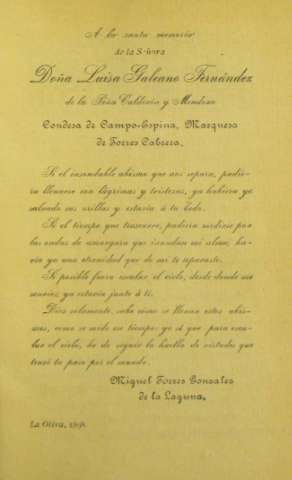 A la santa memoria
de la Señora
Doña Luisa Galeano Fernández
de la Peña Calderón y Mendoza
Condesa de Campo-Espina, Marquesa
de Torres Cabrera.
Si el insondable abismo que nos separa, pudie-
ra llenarse con lágrimas y tristezas, ya hubiera yo
salvado sus orillas y estaría á tu lado.
Si el tiempo que transcurre, pudiera medirse por
las ondas de amargura que inundan mi alma, ha-
ría ya una eternidad que de mí te separaste.
Si posible fuera escalar el cielo, desde donde me
sonríes, ya estaría junto á tí.
Dios solamente, sabe cómo se llenan estos abis-
mos, cómo se mide ese tiempo; yo sé que para esca-
lar el cielo, he de seguir la huella de virtudes que
trazó tu paso por el mundo.
Miguel Torres Gonzales
de la Laguna.
La Oliva,